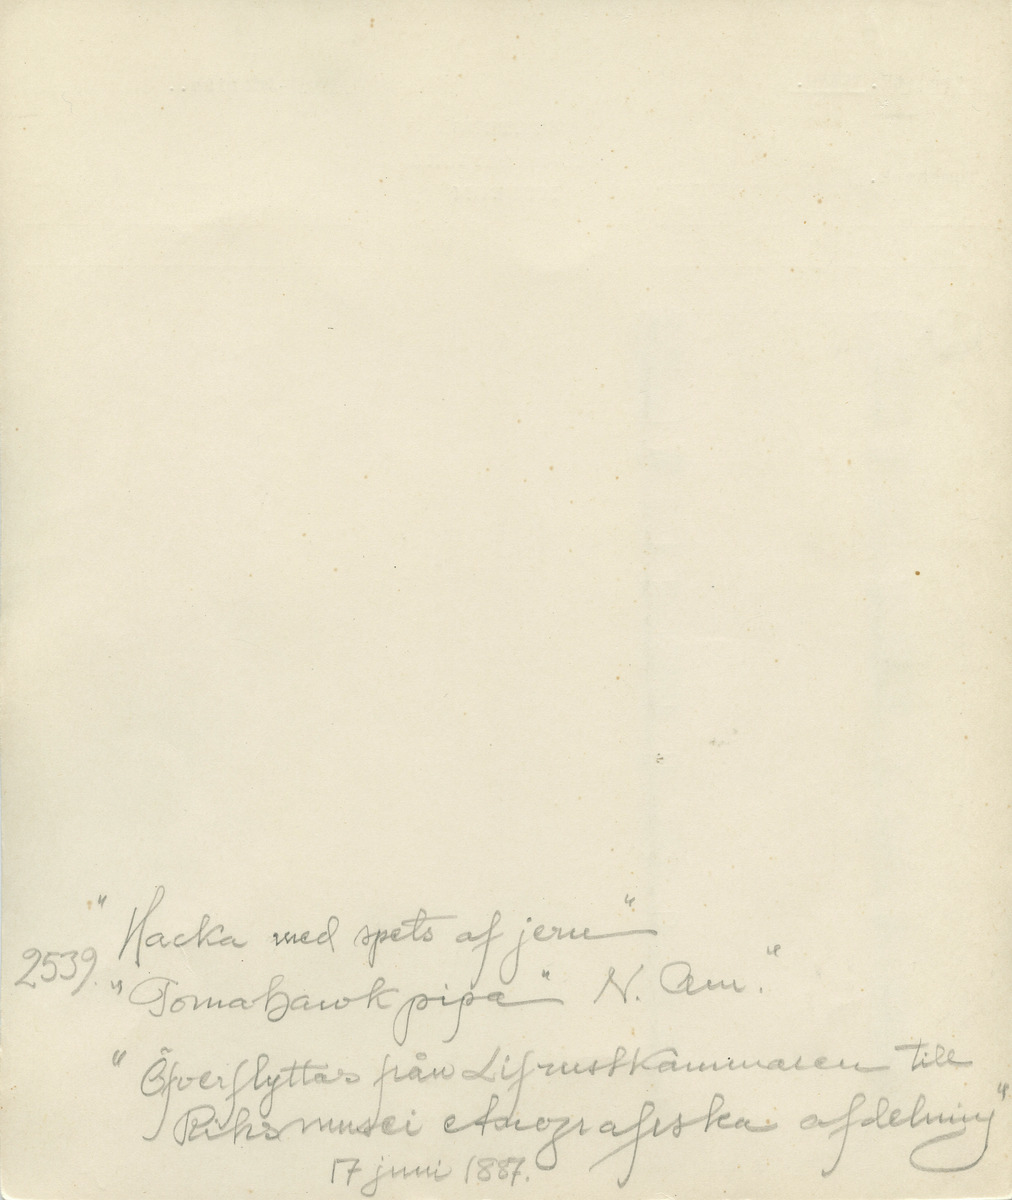 "Hacka med spets af jern"
2539. "Tomahawkpipa" N. Am."
"Öfverflyttas från Lifrustkammaren till
Riksmusei etnografiska afdelning"
17 juni 1887.